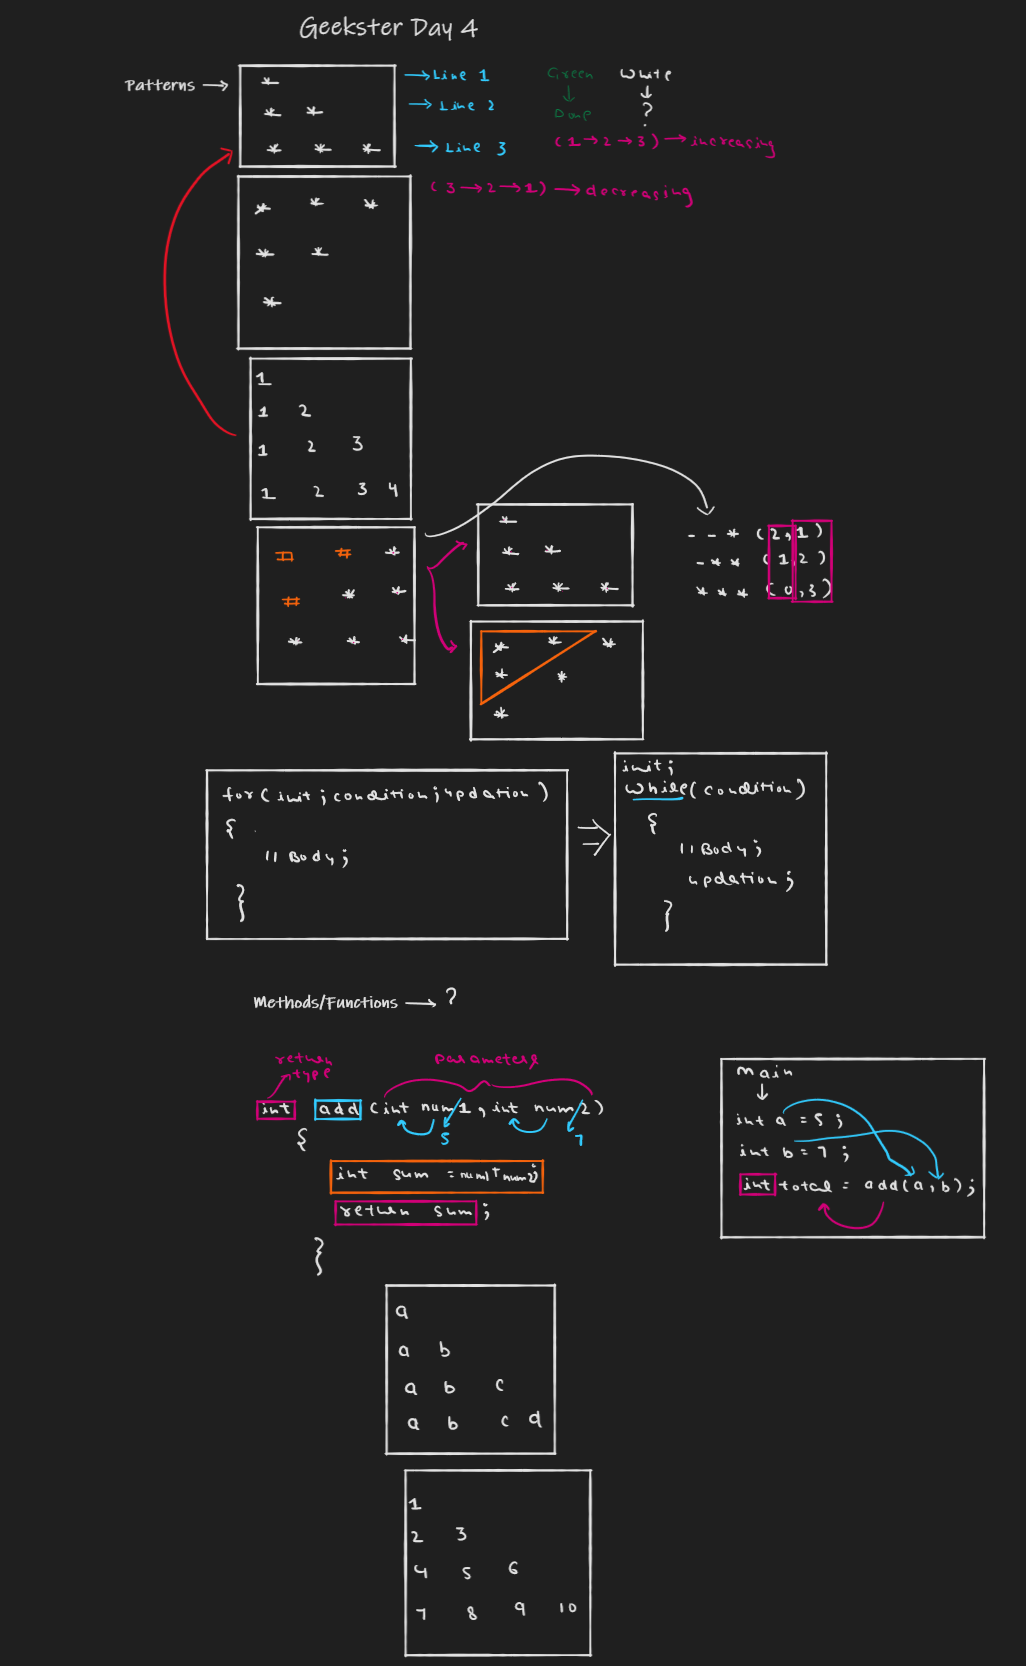 Geekster Day 4
Patterns → * → Line 1 Green White
↓ ↓
* * → Line 2 Done ?
* * * → Line 3 (1→2→3) → increasing
(3→2→1) → decreasing
* * *
* *
*
1
1 2
1 2 3
1 2 3 4
# # *
# * *
* * *
*
* *
* * *
- - * (2,1)
- * * (1,2)
* * * (0,3)
* * *
* *
*
for(init;condition;updation)
{
//Body;
}
⇒
init;
while(condition)
{
//Body;
updation;
}
Methods/Functions → ?
return type
parameters
int add (int num1, int num2)
5 7
{
int sum = num1+num2;
return sum;
}
main
↓
int a = 5;
int b = 7;
int total = add(a,b);
a
a b
a b c
a b c d
1
2 3
4 5 6
7 8 9 10